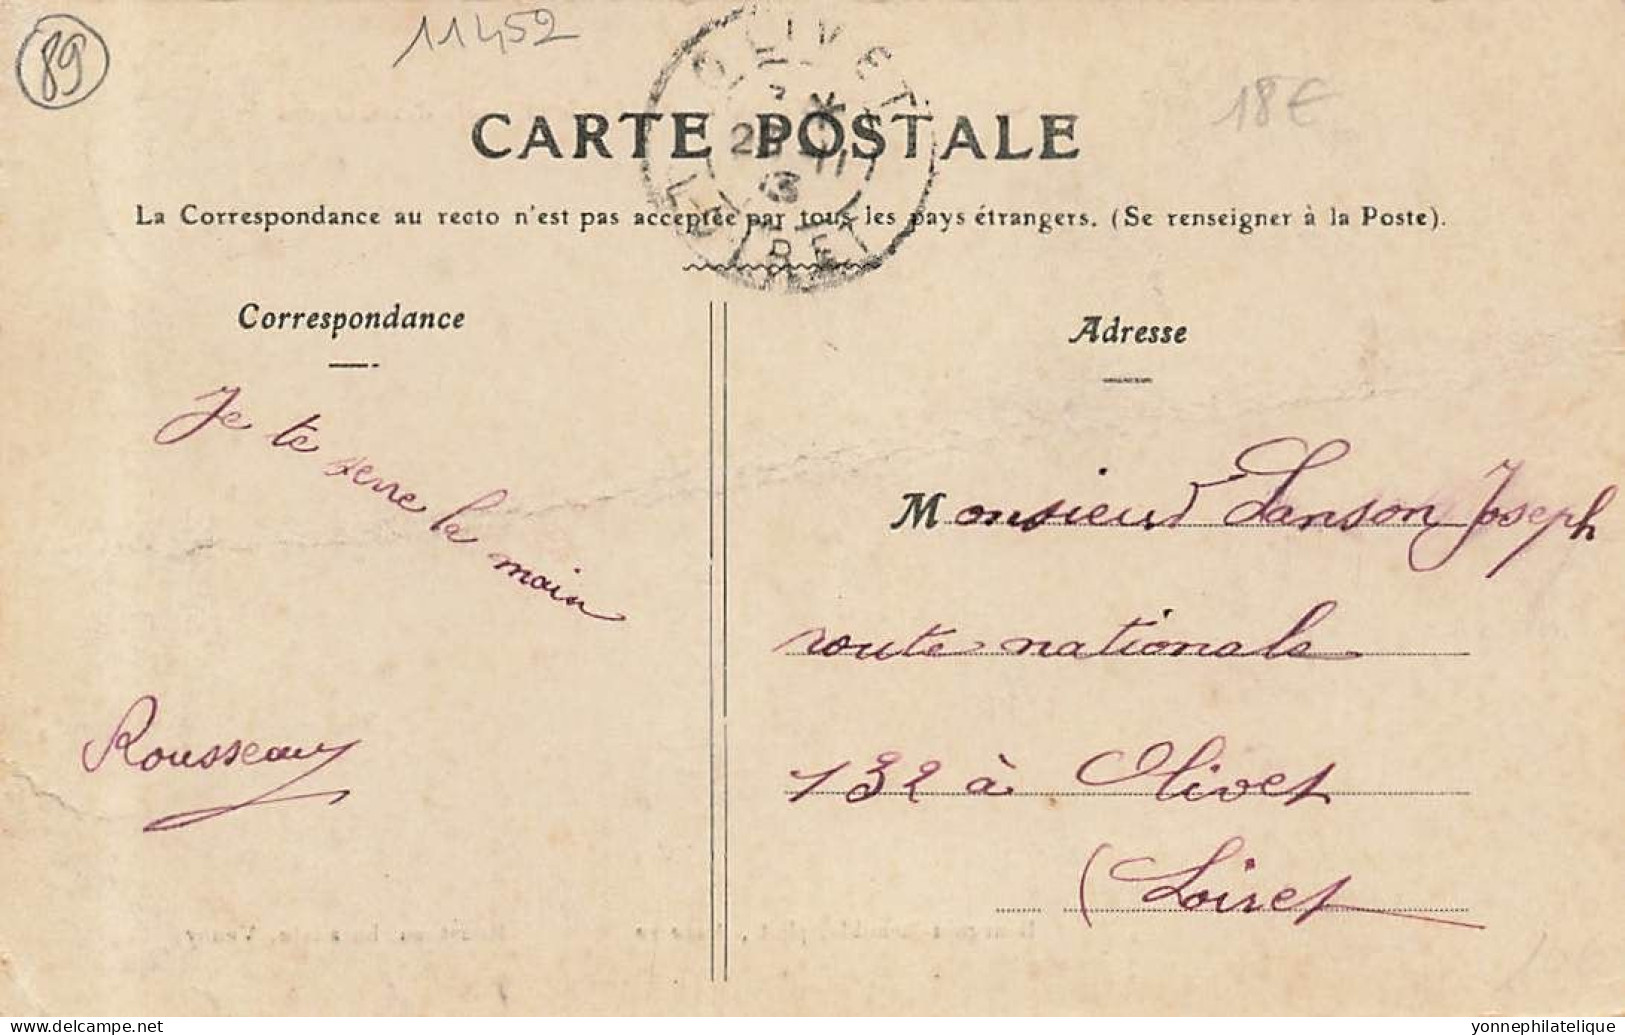 89
11452
18€
OLIVET
28 -11
13
LOIRET
CARTE POSTALE
La Correspondance au recto n'est pas acceptée par tous les pays étrangers. (Se renseigner à la Poste).
Correspondance
Je te serre la main
Rousseau
Adresse
Monsieur Lanson Joseph
route nationale
132 à Olivet
(Loiret
www.delcampe.net
yonnephilatelique